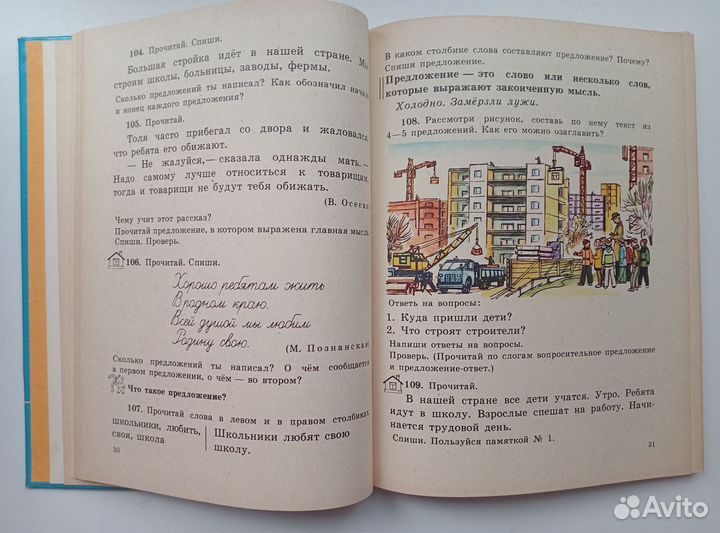 104. Прочитай. Спиши.
Большая стройка идёт в нашей стране. Мы
строим школы, больницы, заводы, фермы.
Сколько предложений ты написал? Как обозначил начало
и конец каждого предложения?
105. Прочитай.
Толя часто прибегал со двора и жаловался,
что ребята его обижают.
— Не жалуйся,— сказала однажды мать.—
Надо самому лучше относиться к товарищам,
тогда и товарищи не будут тебя обижать.
(В. Осеева)
Чему учит этот рассказ?
Прочитай предложение, в котором выражена главная мысль.
Спиши. Проверь.
106. Прочитай. Спиши.
Хорошо ребятам жить
В родном краю.
Всей душой мы любим
Родину свою.
(М. Познанская)
Сколько предложений ты написал? О чём сообщается
в первом предложении, о чём — во втором?
Что такое предложение?
107. Прочитай слова в левом и в правом столбиках.
школьники, любить, Школьники любят свою
своя, школа школу.
30
В каком столбике слова составляют предложение? Почему?
Спиши предложение.
Предложение — это слово или несколько слов,
которые выражают законченную мысль.
Холодно. Замёрзли лужи.
108. Рассмотри рисунок, составь по нему текст из
4—5 предложений. Как его можно озаглавить?
Ответь на вопросы:
1. Куда пришли дети?
2. Что строят строители?
Напиши ответы на вопросы.
Проверь. (Прочитай по слогам вопросительное предложение
и предложение-ответ.)
109. Прочитай.
В нашей стране все дети учатся. Утро. Ребята
идут в школу. Взрослые спешат на работу. Начи-
нается трудовой день.
Спиши. Пользуйся памяткой № 1.
31
Avito